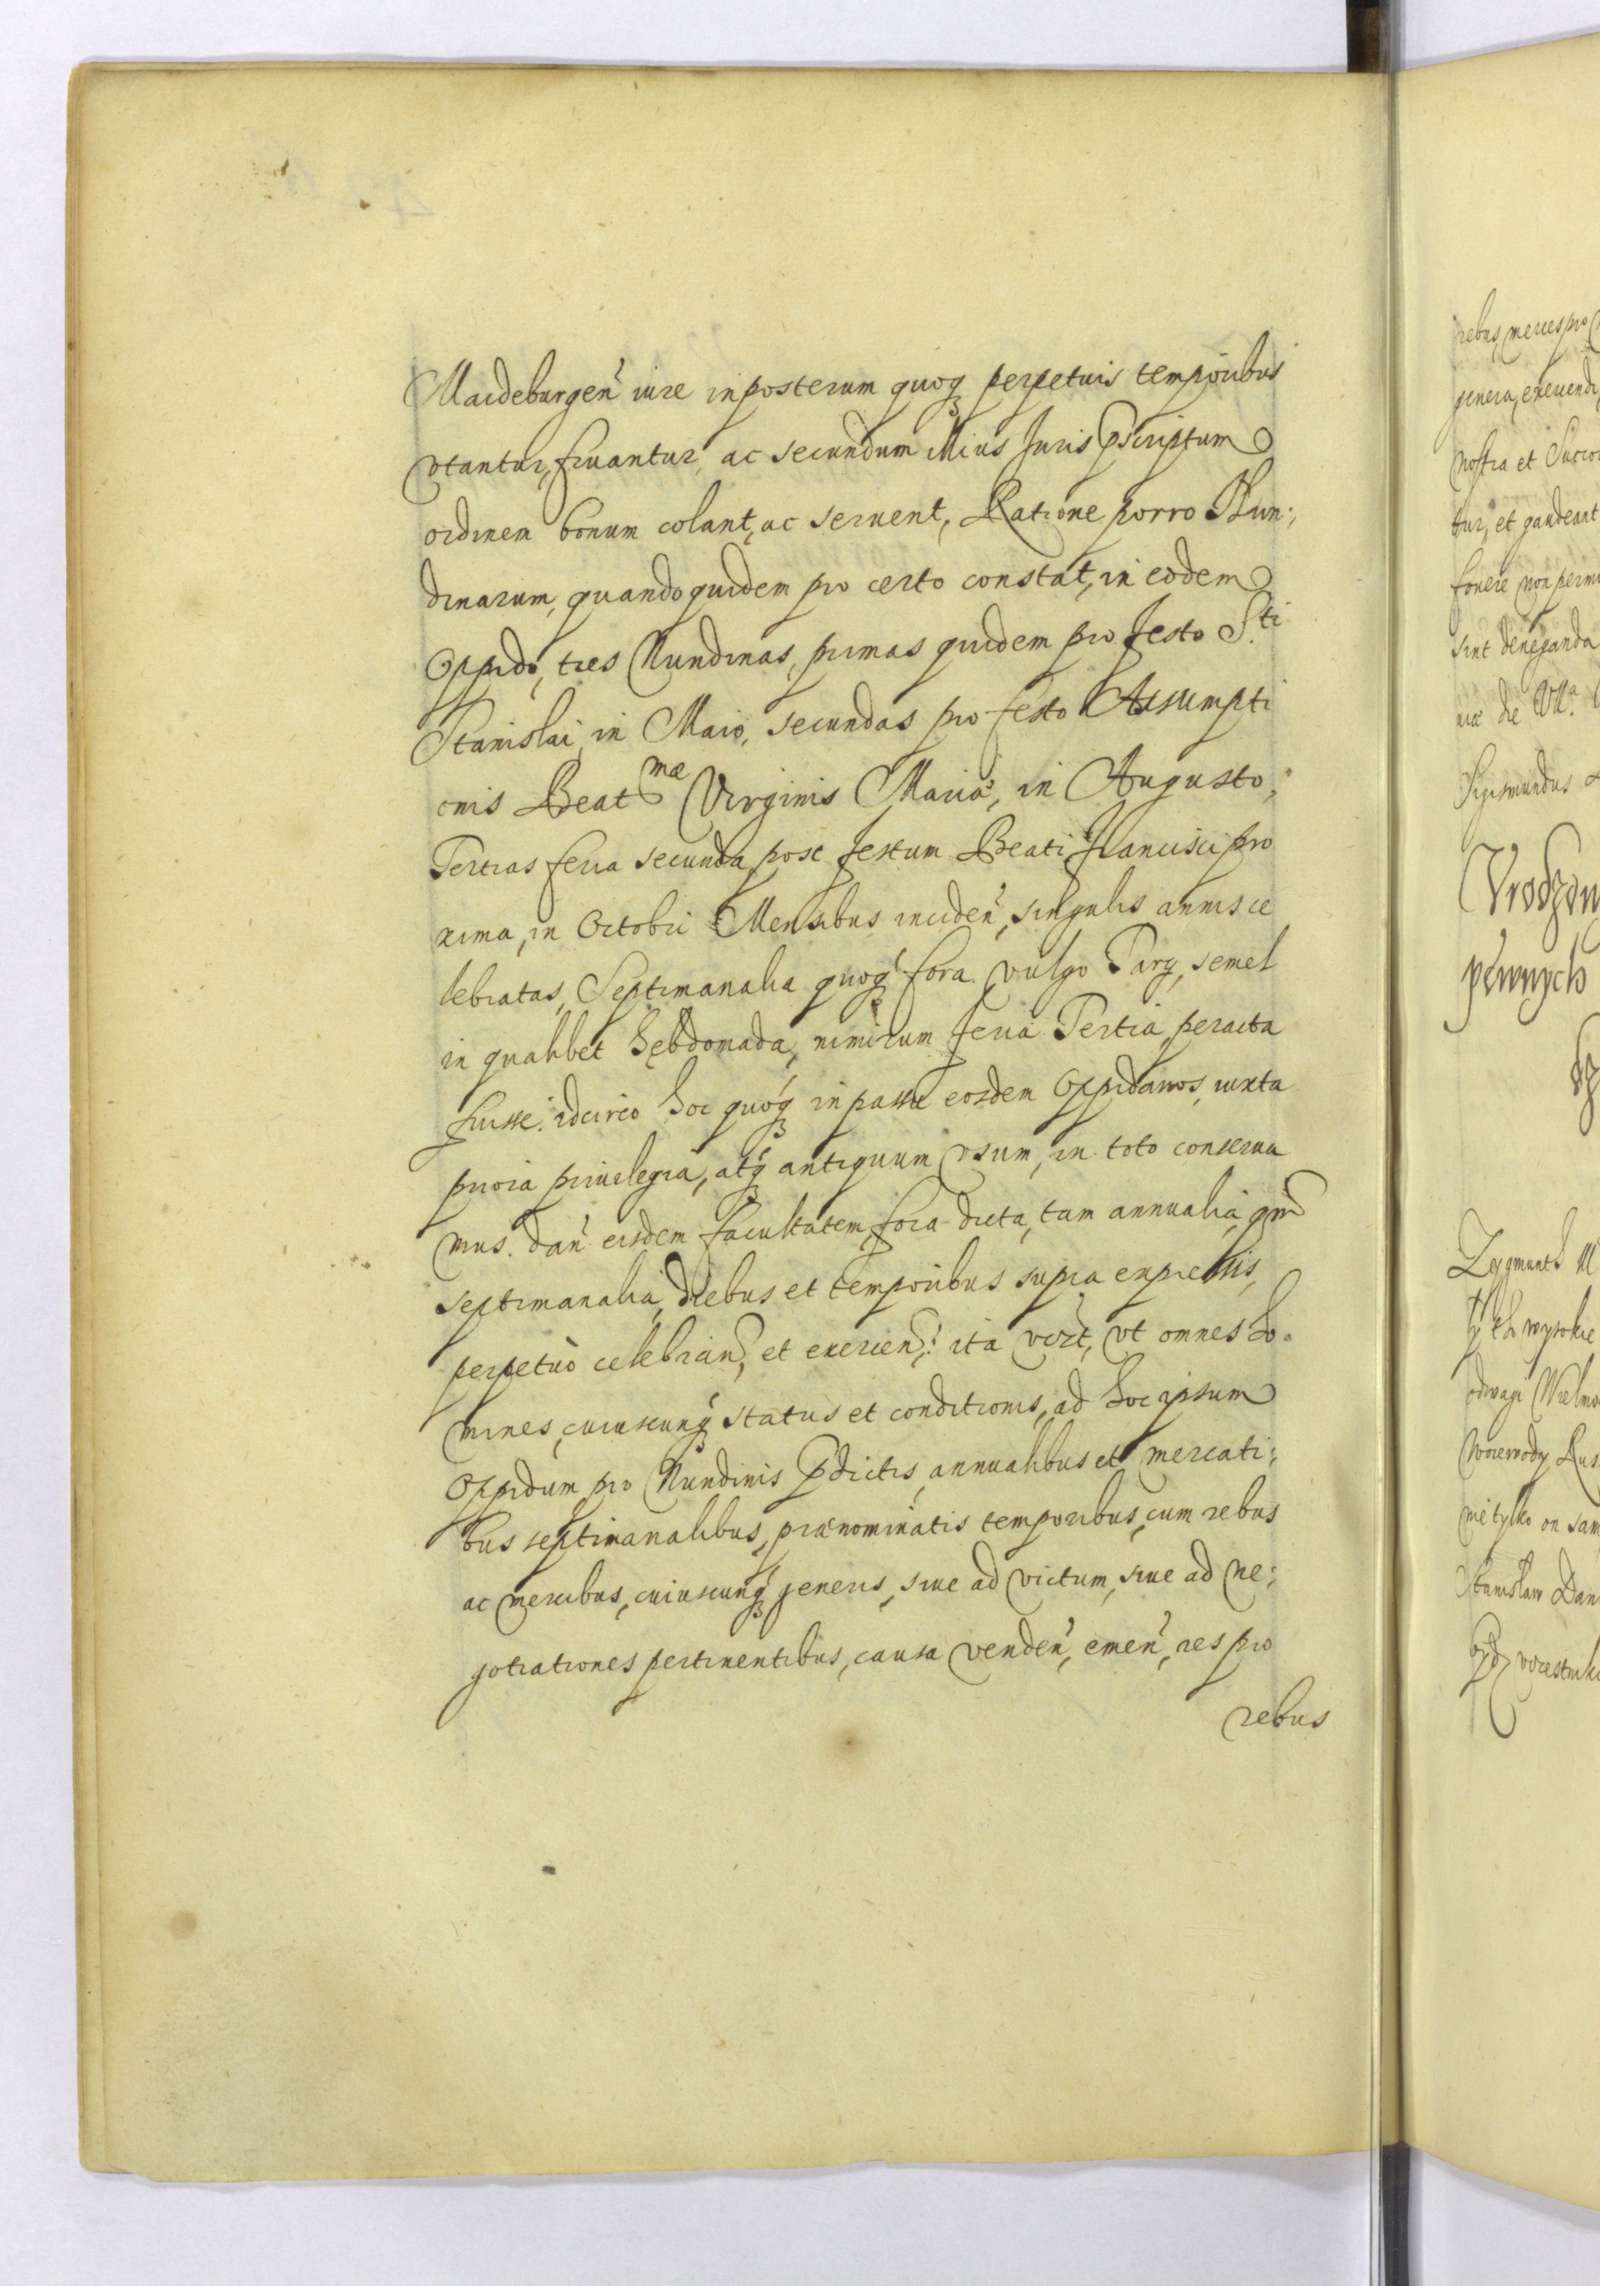 Maideburgen̄ iure inposterum quoq perpetuis temporibus
vtantur, fruantur, ac secundum illius Juris pscriptum
ordinem bonum colant, ac seruent, Ratione porro Nun:,
dinarum, quandoquidem pro certo constat, in eodem
Oppido, tres Nundinas, primas quidem pro festo S.ti
Stanislai in Maio, secundas pro festo Assumpti
onis Beatmæ Virginis Mariæ, in Augusto,
Tertias feria secunda post festum Beati Francisci pro
xima, in Octobri Mensibus inciden̄, singulis annis ce
lebratas, Septimanalia quoq fora vulgo Targ, semel
in qualibet hebdomada, nimirum feria Tertia, peracta
fuisse: idcirco hoc quoq in passu eosdem Oppidanos, iuxta
priora priuilegia, atq antiquum vsum, in toto conserua
mus. dan̄ eisdem facultatem, fora dicta, tam annualia, qm̄
septimanalia, diebus et temporibus supra expressis,
perpetuò celebran̄, et exercen̄: ita vt, vt omnes ho=
mines, cuiuscunq status et conditionis, ad hoc ipsum
Oppidum pro Nundinis pdictis, annualibus et mercati:,
bus septimanalibus, prænominatis temporibus, cum rebus
ac mercibus, cuiuscunq generis, siue ad victum, siue ad ne:,
gotiationes pertinentibus, causa venden̄, emen̄, res pro
rebus
rebus, merces pro
genera, exeuendi
nostra et Succe
tur, et gaudeant
fouere non permi
sint deneganda
Sigismundus
pewnych
Zygmunth
odwagi Wielmo
Woiewody Rus
nie tylko on sam
Stanislaw Dan